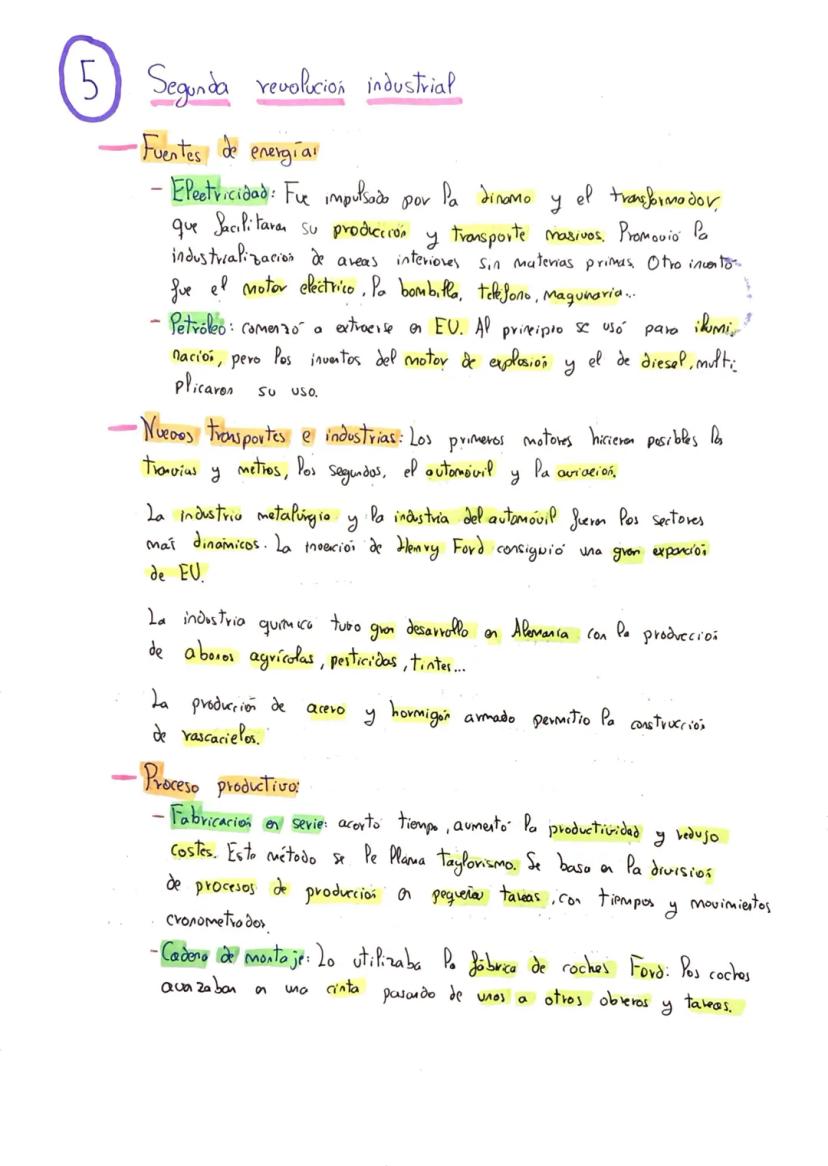 5 Segunda revolución industrial
— Fuentes de energía:
- Electricidad: Fue impulsado por la dinamo y el transformador,
que facilitaron su producción y transporte masivos. Promovió la
industrialización de areas interiores sin materias primas. Otro invento
fue el motor eléctrico, la bombilla, teléfono, maquinaria...
- Petróleo: comenzó a extraerse en EU. Al principio se usó para ilumi_
nación, pero los inventos del motor de explosión y el de diesel, multi_
plicaron su uso.
— Nuevos transportes e industrias: Los primeros motores hicieron posibles los
tranvias y metros, los segundos, el automóvil y la aviación.
La industria metalúrgia y la industria del automóvil fueron los sectores
más dinámicos. La de Henry Ford consiguió una gran expansión
de EU.
La industria química tuvo gran desarrollo en Alemania con la producción
de abonos agrícolas, pesticidas, tintes...
La producción de acero y hormigón armado permitio la construcción
de rascacielos.
— Proceso productivo:
- Fabricación en serie: acorto tiempo, aumentó la productividad y redujo
costes. Este método se le llama taylorismo. Se basa en la división
de procesos de producción en pequeñas tareas, con tiempos y movimientos
cronometrados.
- Cadena de montaje: Lo utilizaba la fábrica de coches Ford: los coches
avanzaban en una cinta pasando de unos a otros obreros y tareas.